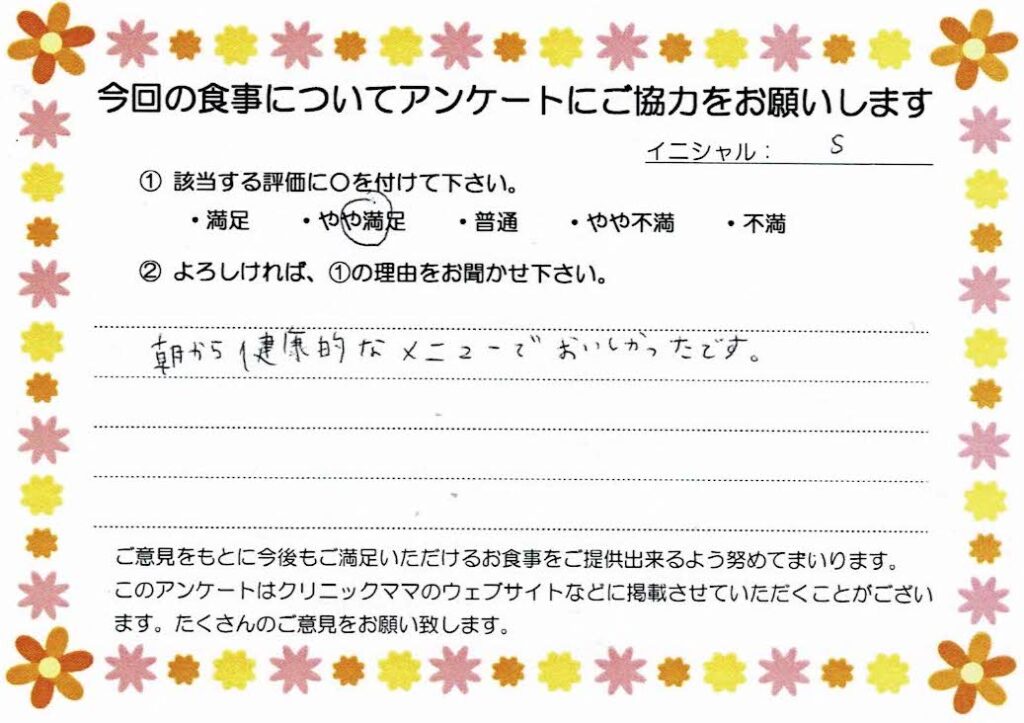 今回の食事についてアンケートにご協力をお願いします
イニシャル： S
① 該当する評価に○を付けて下さい。
・満足 ・やや満足 ・普通 ・やや不満 ・不満
② よろしければ、①の理由をお聞かせ下さい。
朝から健康的なメニューでおいしかったです。
ご意見をもとに今後もご満足いただけるお食事をご提供出来るよう努めてまいります。
このアンケートはクリニックママのウェブサイトなどに掲載させていただくことがござい
ます。たくさんのご意見をお願い致します。